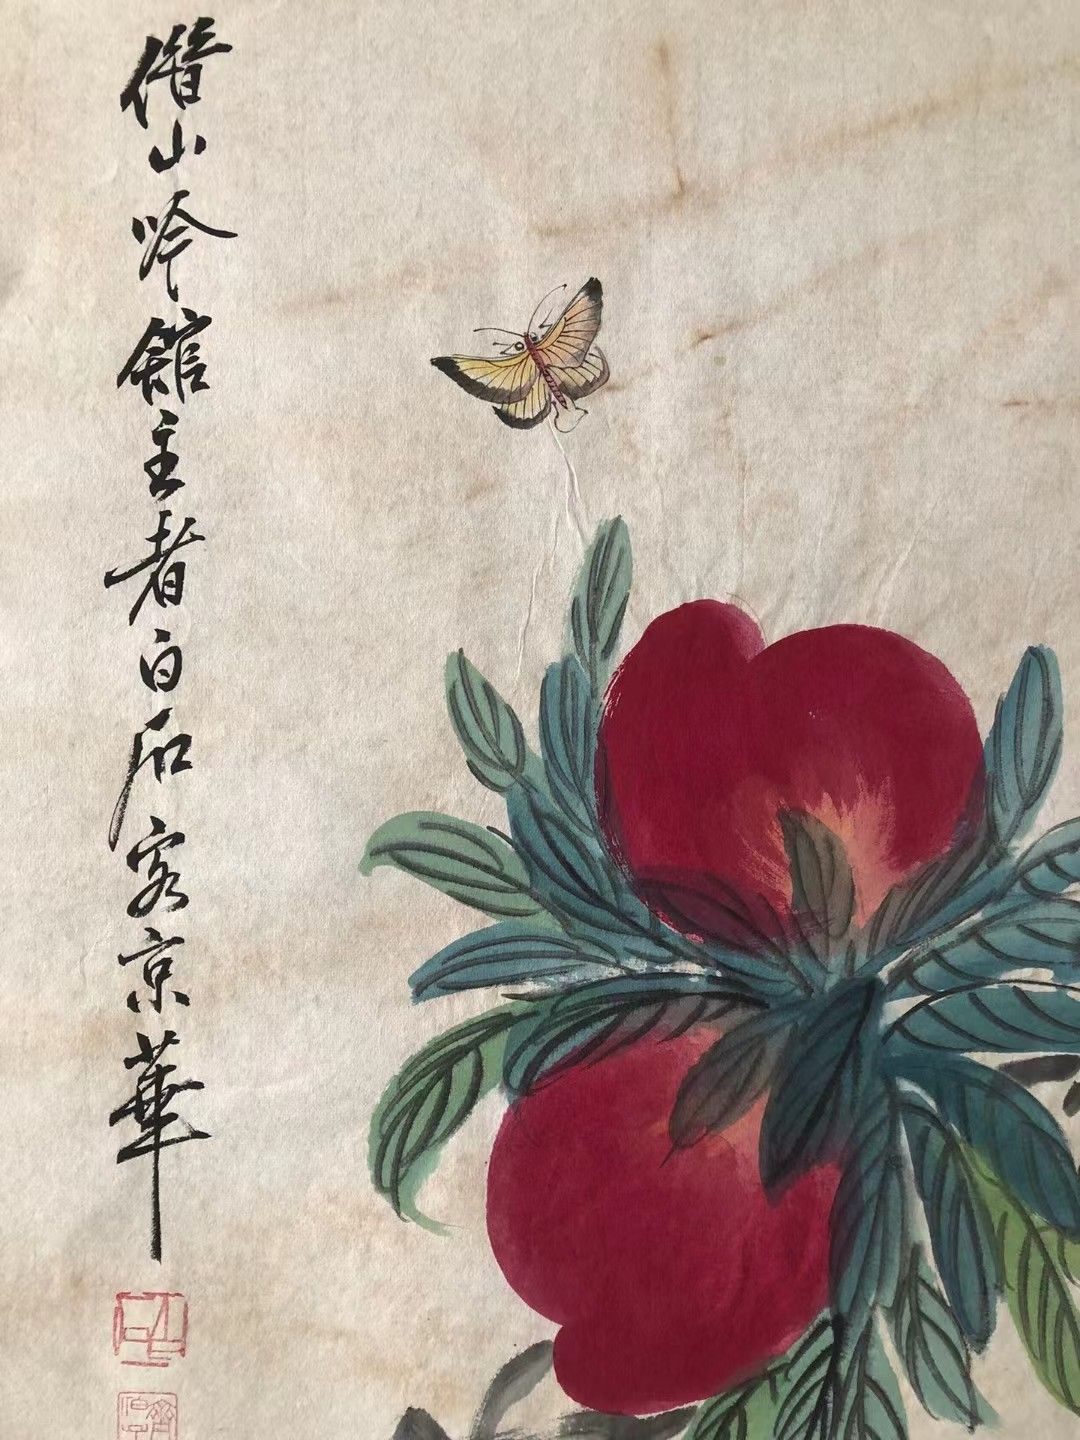 僭山吟館主者白石客京華